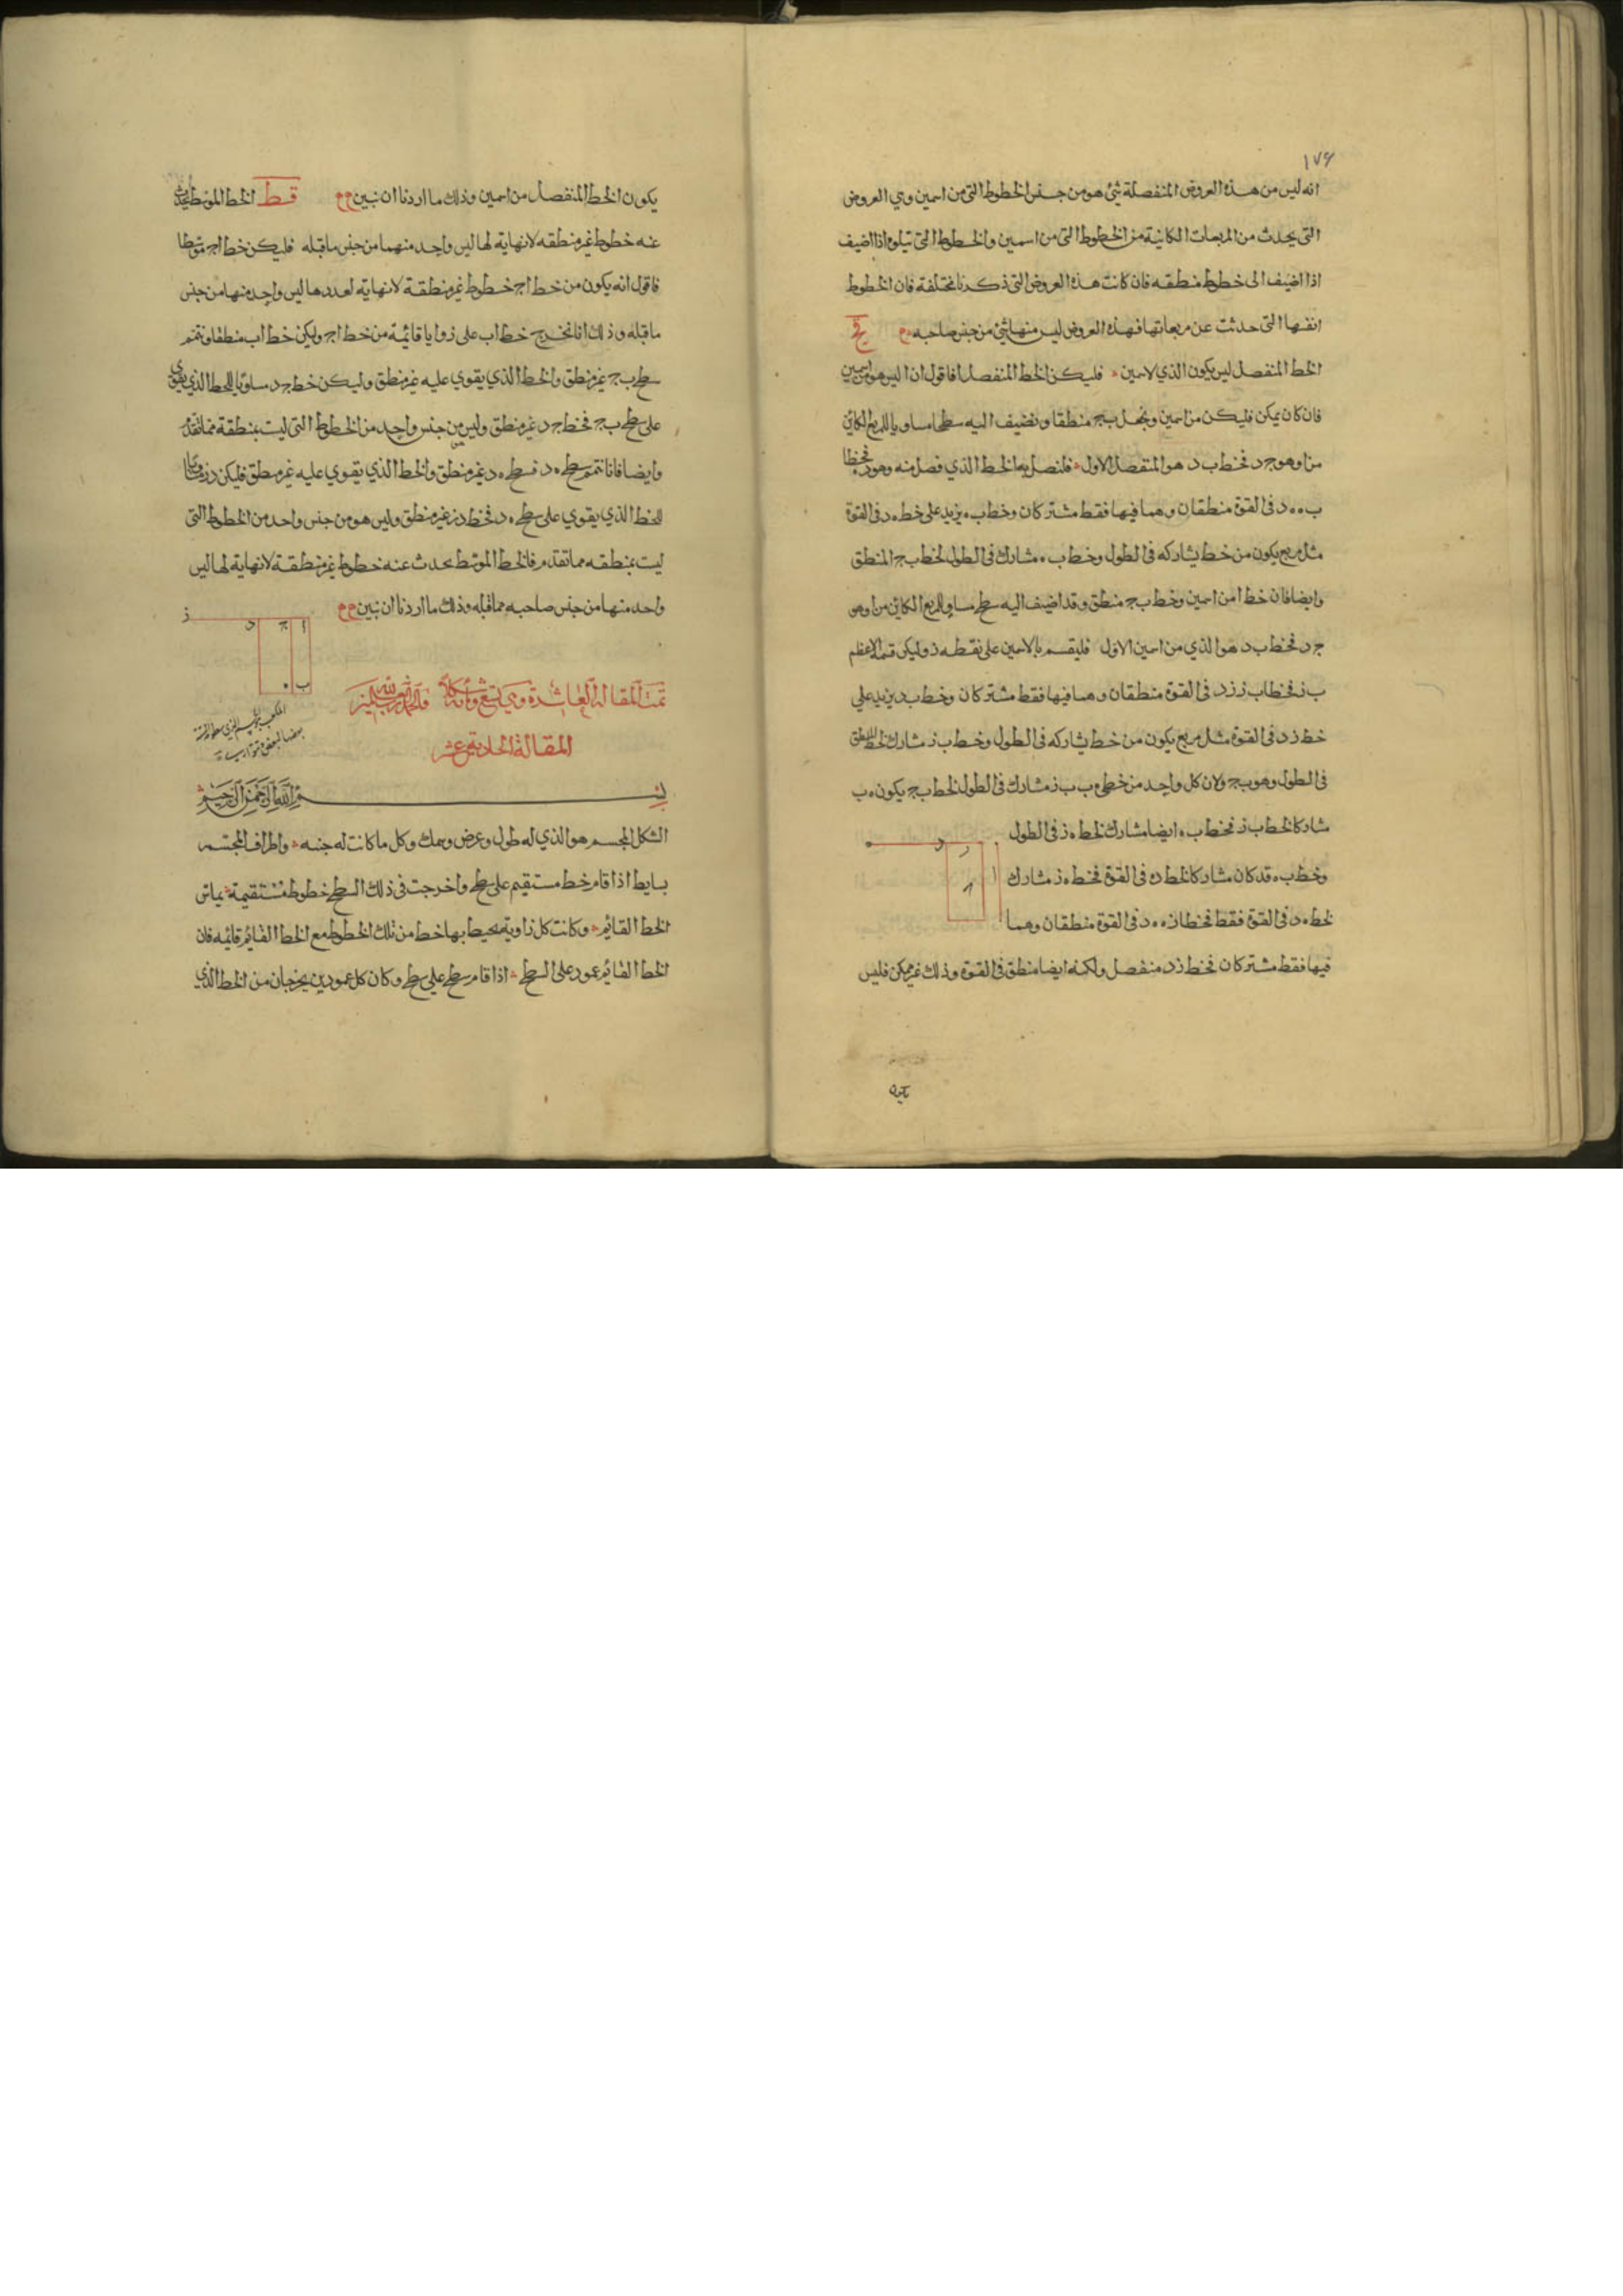 ١٧٤
انه ليس من هذه العروض المنفصلة شئ هو من جنس الخطوط التى من اسمين وهي العروض
التى يحدث من المربعات الكائنة من الخطوط التى من اسمين والخطوط التى تتلوه اذا اضيف
اذا اضيف الى خطوط منطقه فان كانت هذه العروض التى ذكرنا مختلفة فان الخطوط
انفسها التى حدثت عن مربعاتها فهذه العروض ليس منها شئ من جنس صاحبه
الخط المنفصل ليس يكون الذي لاسمين فليكن الخط المنفصل ا فاقول ان ا ليس هو من اسمين
فان كان يمكن فليكن من اسمين ونجعل ب ج منطقا ونضيف اليه سطحا مساويا للمربع الكائن
من ا وهو ج د فخط ب د هو المنفصل الاول فلنصل به الخط الذي فصل منه وهو ه د فخطا
ب ه ه د فى القوة منطقان وهما فيها فقط مشتركان وخط ب ه يزيد على خط ه د فى القوة
مثل مربع يكون من خط يشاركه فى الطول وخط ب ه مشارك فى الطول لخط ب ج المنطق
وايضا فان خط ا من اسمين وخط ب ج منطق وقد اضيف اليه سطح مساو للمربع الكائن من ا وهو
ج د فخط ب د هو الذي من اسمين الاول فليقسم بالاسمين على نقطه ز وليكن قسمه الاعظم
ب ز فخطا ب ز ز د فى القوة منطقان وهما فيها فقط مشتركان وخط ب ز يزيد على
خط ز د فى القوة مثل مربع يكون من خط يشاركه فى الطول وخط ب ز مشارك لخط المنطق
فى الطول وهو ب ج ولان كل واحد من خطي ه ب ب ز مشارك فى الطول لخط ب ج يكون ه ب
مشاركا لخط ب ز فخط ب ه ايضا مشارك لخط ه ز فى الطول
وخط ب ه قد كان مشاركا لخط ه د فى القوة فخط ه ز مشارك
لخط ه د فى القوة فقط فخطا ز ه ه د فى القوة منطقان وهما
فيها فقط مشتركان فخط ز د منفصل ولكنه ايضا منطق فى القوة وذلك غير ممكن فليس
يكون الخط المنفصل من اسمين وذلك ما اردنا ان نبين قط الخط الموسط يحدث
عنه خطوط غير منطقه لا نهاية لها ليس واحد منهما من جنس ما قبله فليكن خط ا ج موسطا
فاقول انه يكون من خط ا ج خطوط غير منطقة لا نهاية لعددها ليس واحد منها من جنس
ما قبله وذلك انا نخرج خط ا ب على زوايا قائمة من خط ا ج وليكن خط ا ب منطقا ونتمم
سطح ب ج غير منطق والخط الذي يقوي عليه غير منطق وليكن خط ج د مساويا للخط الذي يقوي
على سطح ب ج فخط ج د غير منطق وليس من جنس واحد من الخطوط التى ليست بمنطقة مما تقدم
وايضا فانا نتمم سطح ه د فسطح ه د غير منطق والخط الذي يقوي عليه غير منطق فليكن د ز مساويا
للخط الذي يقوي على سطح ه د فخط د ز غير منطق وليس هو من جنس واحد من الخطوط التى
ليست بمنطقه مما تقدم فالخط الموسط يحدث عنه خطوط غير منطقة لا نهاية لها ليس
واحد منها من جنس صاحبه مما قبله وذلك ما اردنا ان نبين
تمت المقالة العاشرة وهي تسع ومائة شكلا
المقالة الحادية عشر
بسم الله الرحمن الرحيم
الشكل المجسم هو الذي له طول وعرض وسمك وكل ما كانت له جنبه واطراف المجسم
بسايط اذا قام خط مستقيم على سطح واخرجت فى ذلك السطح خطوط مستقيمة تماس
الخط القائم وكانت كل زاوية يحيط بها خط من تلك الخطوط مع الخط القائم قائمه فان
الخط القائم عمود على السطح اذا قام سطح على سطح وكان كل عمودين يخرجان من الخط الذي